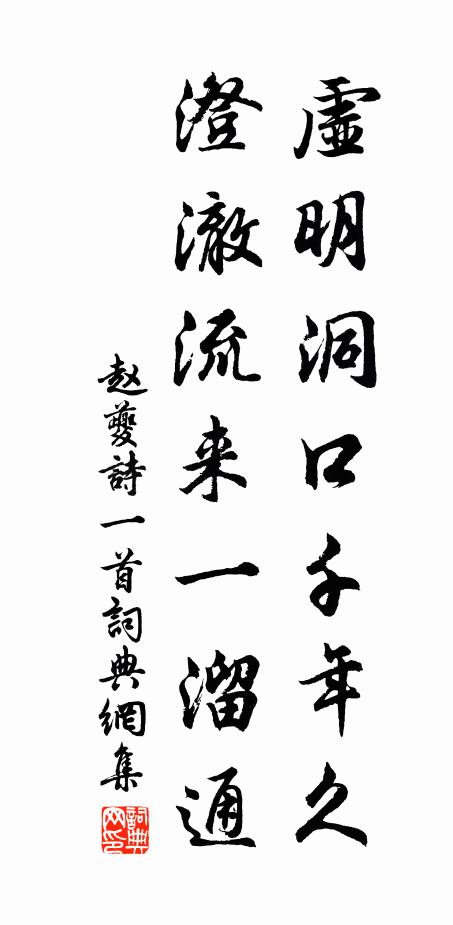 虛明洞口千年久
澄澈流来一溜通
赵夔詩一首詞典網集
詞典
网印